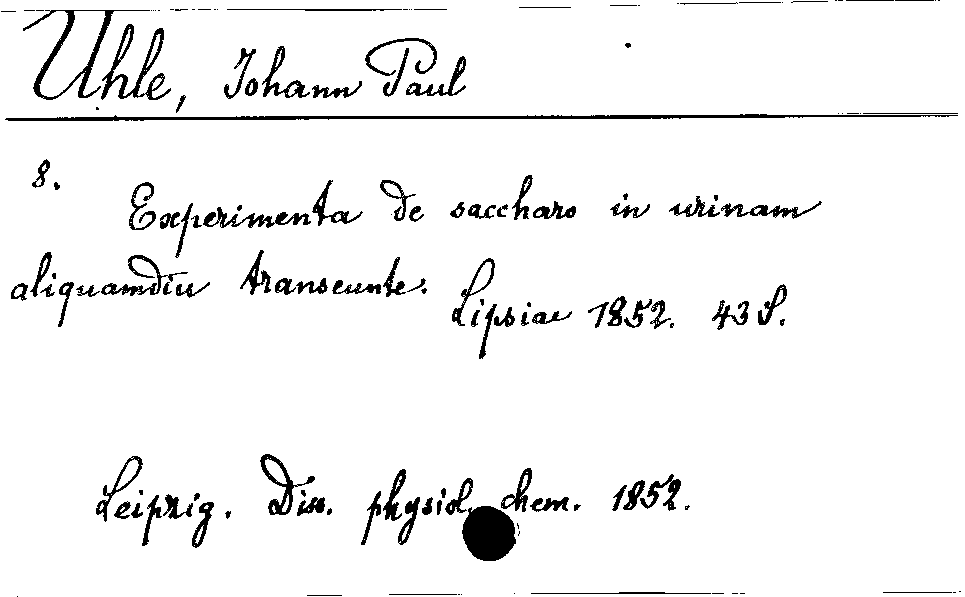 Uhle, Johann Paul
8.
Experimenta de saccharo in urinam
aliquamdiu transeunte.
Lipsiae 1852. 43 S.
Leipzig. Diss. physiol. chem. 1852.